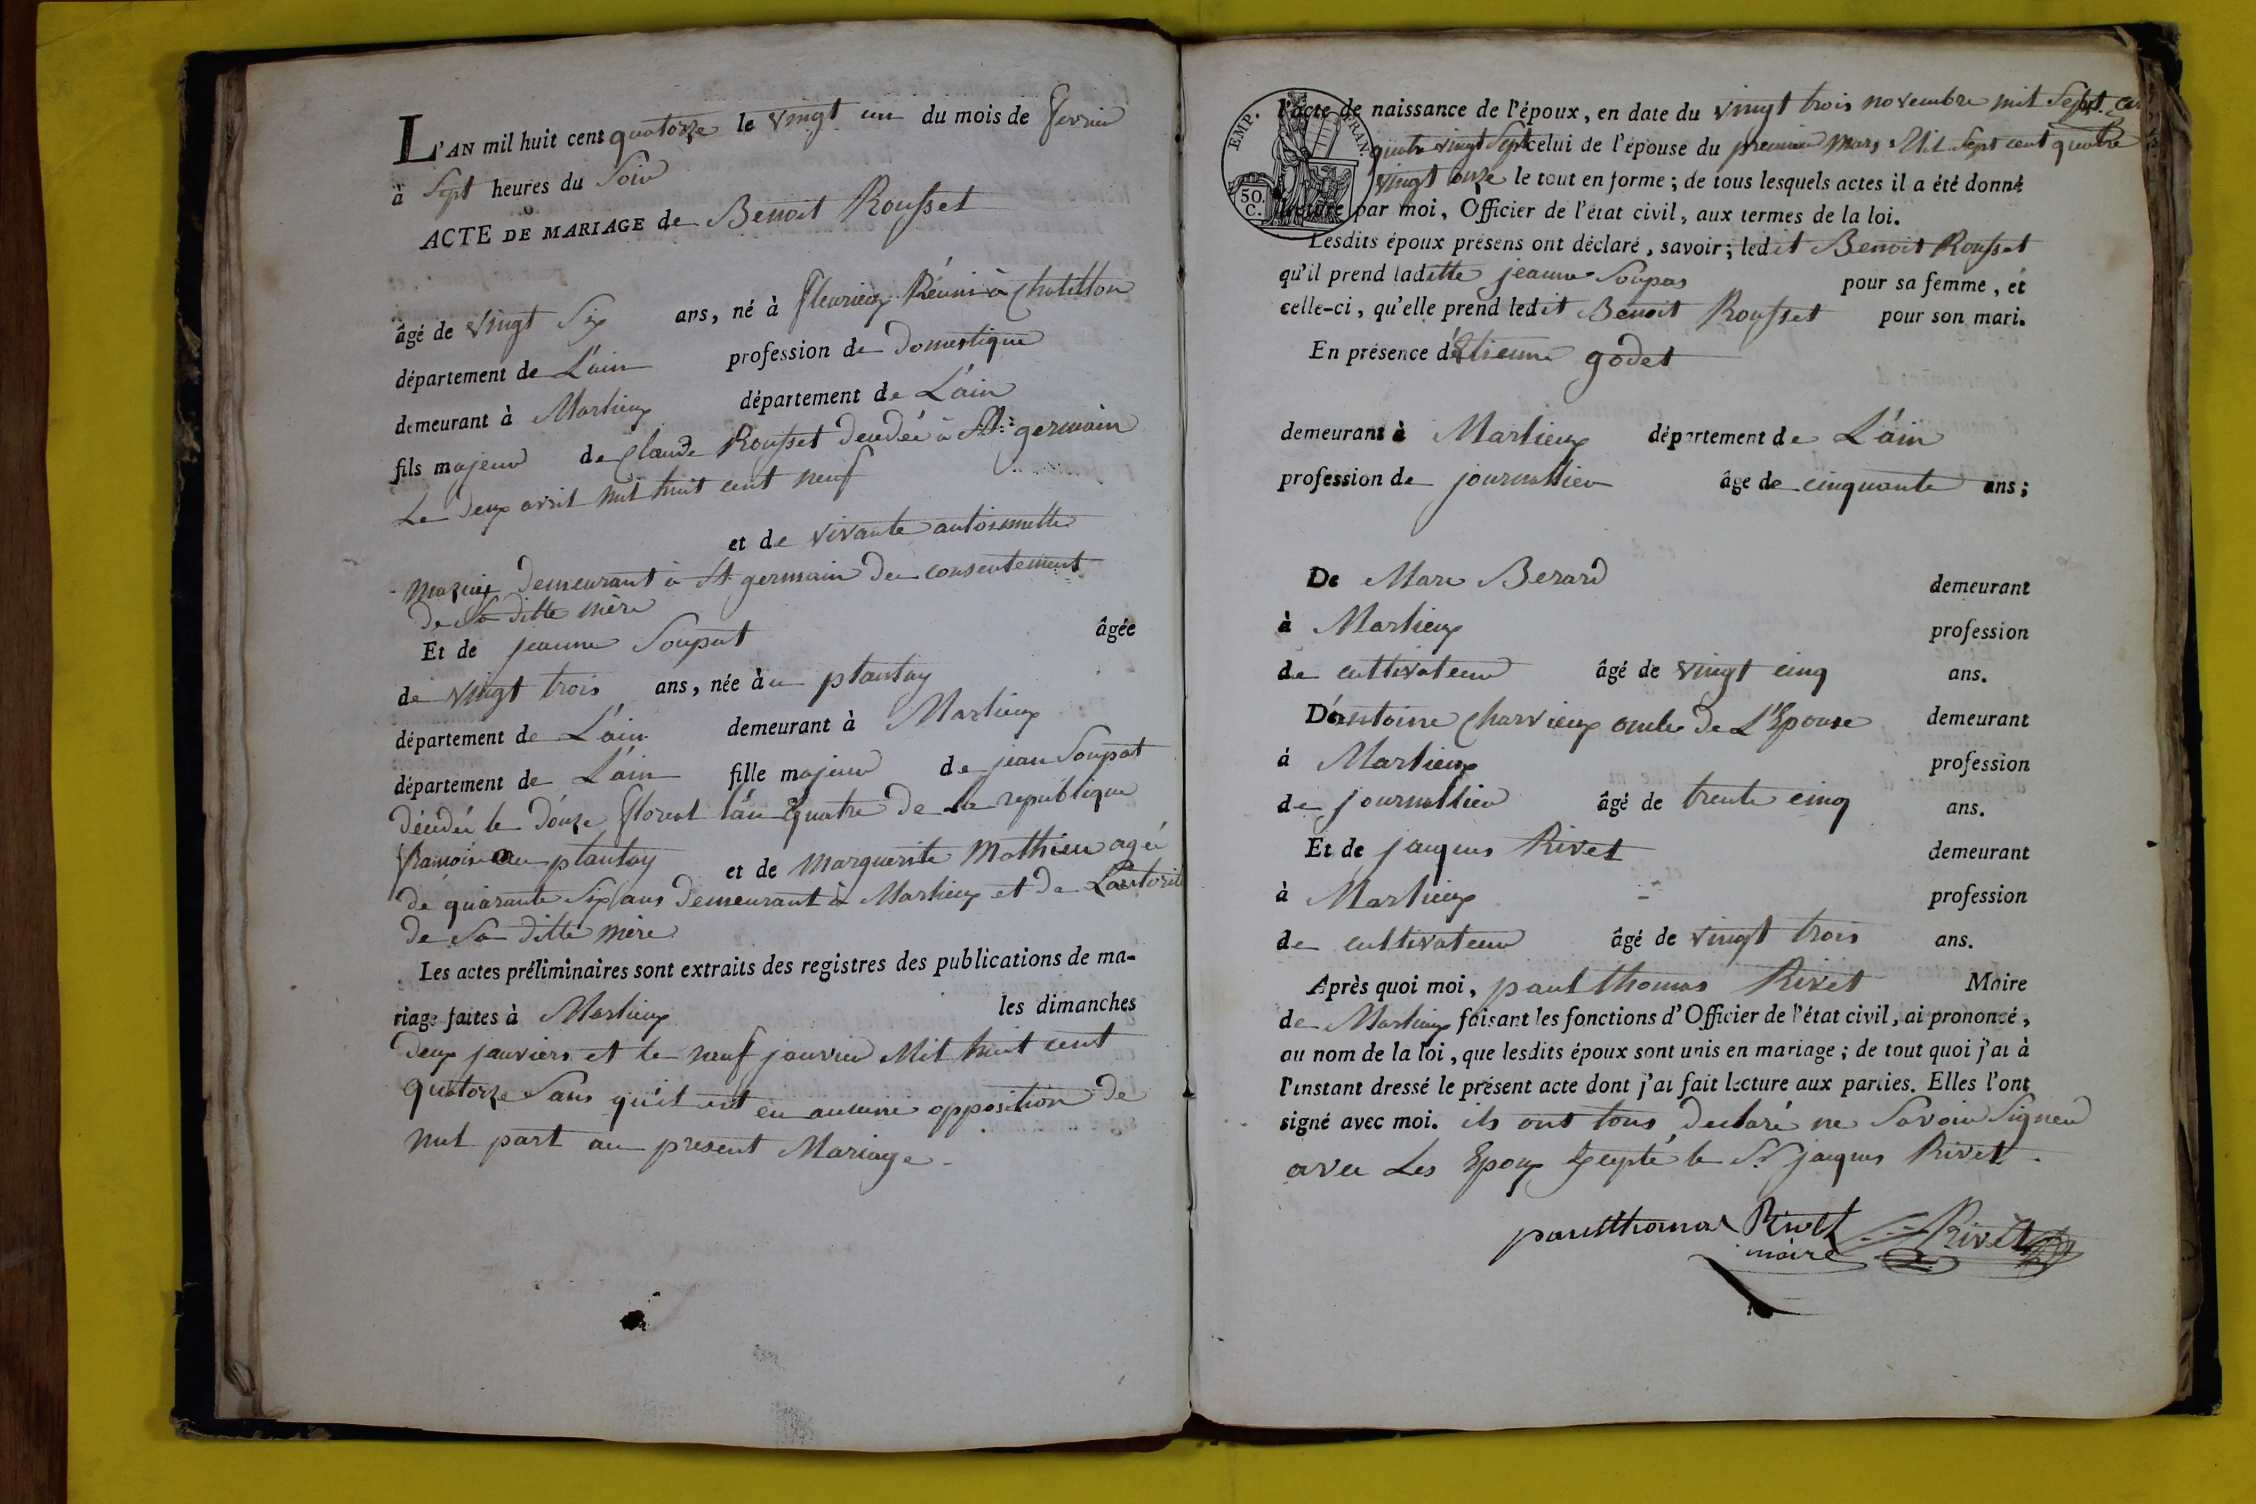 L'AN mil huit cent quatorze le vingt un du mois de fevrier
à Sept heures du Soir
ACTE DE MARIAGE de Benoit Rousset
âgé de vingt Six ans, né à fleurieux Réuni à Chatillon
département de L'ain profession de Domestique
demeurant à Marlieux département de L'ain
fils majeur de Claude Rousset décédé à St germain
Le deux avril mil huit cent neuf
et de vivante antoinette
demeurant à St germain du consentement
de Sa ditte mère
Et de jeanne Soupat âgée
de vingt trois ans, née àu plantay
département de L'ain demeurant à Marlieux
département de L'ain fille majeur de jean Soupat
décédé le douze floreal l'an quatre de la republique
au plantay et de marguerite Mathieu agée
de quarante Six ans Demeurant à Marlieux et de Lautorité
de Sa ditte mère
Les actes préliminaires sont extraits des registres des publications de ma-
riage faites à Marlieux les dimanches
deux janviers et le neuf janvier Mil huit cent
quatorze Sans qu'il eut eu aucune opposition de
nul part au present Mariage -
EMP. FRAN.
50.
C.
l'acte de naissance de l'époux, en date du vingt trois novembre mil Sept cent
quatre vingt Sept celui de l'épouse du premier Mars Mil Sept cent quatre
vingt onze le tout en forme; de tous lesquels actes il a été donné
lecture par moi, Officier de l'état civil, aux termes de la loi.
Lesdits époux présens ont déclaré, savoir; ledit Benoit Rousset
qu'il prend laditte jeanne Soupas pour sa femme, et
celle-ci, qu'elle prend ledit Benoit Rousset pour son mari.
En présence d'Etienne godet
demeurant à Marlieux département de L'ain
profession de journallier âge de cinquante ans;
De Marc Berard demeurant
à Marlieux profession
de cultivateur âgé de vingt cinq ans.
D'antoine Charvieux oncle de L'Epouse demeurant
à Marlieux profession
de journallier âgé de trente cinq ans.
Et de jacques Rivet demeurant
à Marlieux profession
de cultivateur âgé de vingt trois ans.
Après quoi moi, paul thomas Rivet Maire
de Marlieux faisant les fonctions d'Officier de l'état civil, ai prononcé,
au nom de la loi, que lesdits époux sont unis en mariage; de tout quoi j'ai à
l'instant dressé le présent acte dont j'ai fait lecture aux parties. Elles l'ont
signé avec moi. ils ont tous declaré ne Savoir Signer
avec Les Epoux Excepté le Sr jacques Rivet.
paul thomas Rivet Rivet
maire